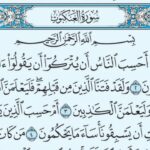 سُورَةُ العَنكَبُوتِ
بِسْمِ ٱللَّهِ ٱلرَّحْمَٰنِ ٱلرَّحِيمِ
أَحَسِبَ ٱلنَّاسُ أَن يُتْرَكُوٓا۟ أَن يَقُولُوٓا۟
٢ وَلَقَدْ فَتَنَّا ٱلَّذِينَ مِن قَبْلِهِمْ فَلَيَعْلَمَنَّ
وَلَيَعْلَمَنَّ ٱلْكَٰذِبِينَ ٣ أَمْ حَسِبَ ٱلَّذِينَ
أَن يَسْبِقُونَا سَآءَ مَا يَحْكُمُونَ ٤ مَن كَانَ